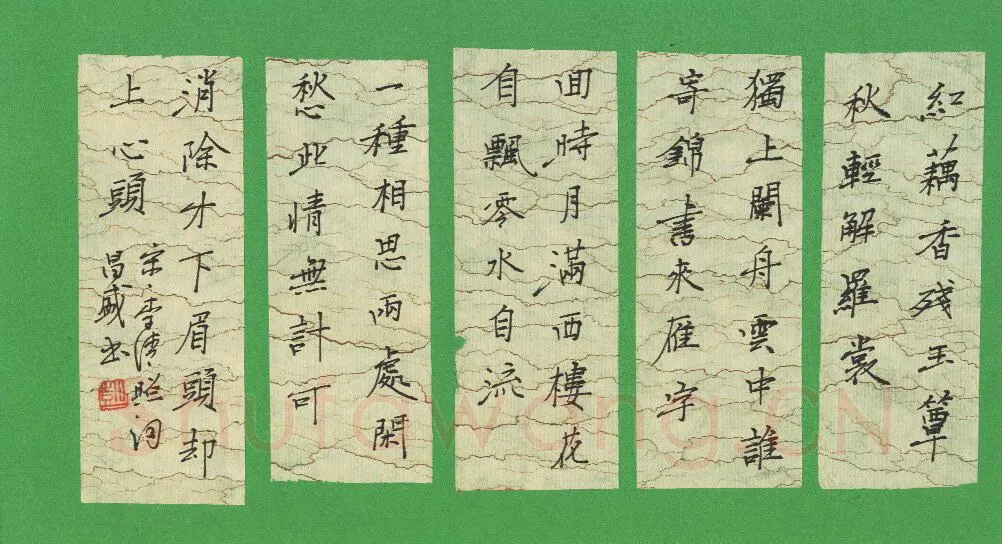 紅藕香殘玉簟
秋輕解羅裳
獨上蘭舟雲中誰
寄錦書來雁字
回時月滿西樓花
自飄零水自流
一種相思兩處閑
愁此情無計可
消除才下眉頭却
上心頭
宋李清照詞
昌盛书
shufawang.CN